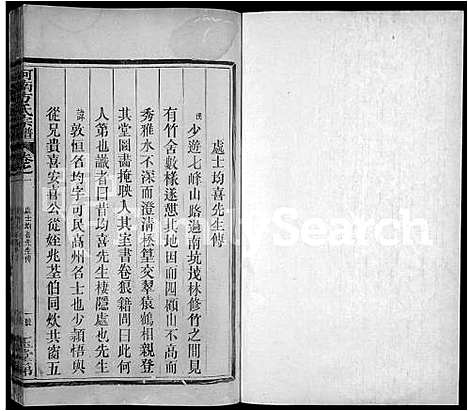 處士均喜先生傳
僕少遊七峰山路過南坑茂林修竹之間見
有竹舍數椽遂憩其地因而四顧山不高而
秀雅水不深而澄清松篁交翠猿鶴相親登
其堂圖畫掩映入其室書卷狼籍問曰此何
人第也識者曰昔均喜先生棲隱處也先生
諱敦恒名均字可民高州名士也少穎悟與
從兄貴喜安喜公從姪兆荃伯同炊其窗五
河南方氏宗譜
卷之一
處士均喜先生傳
FamilySearch